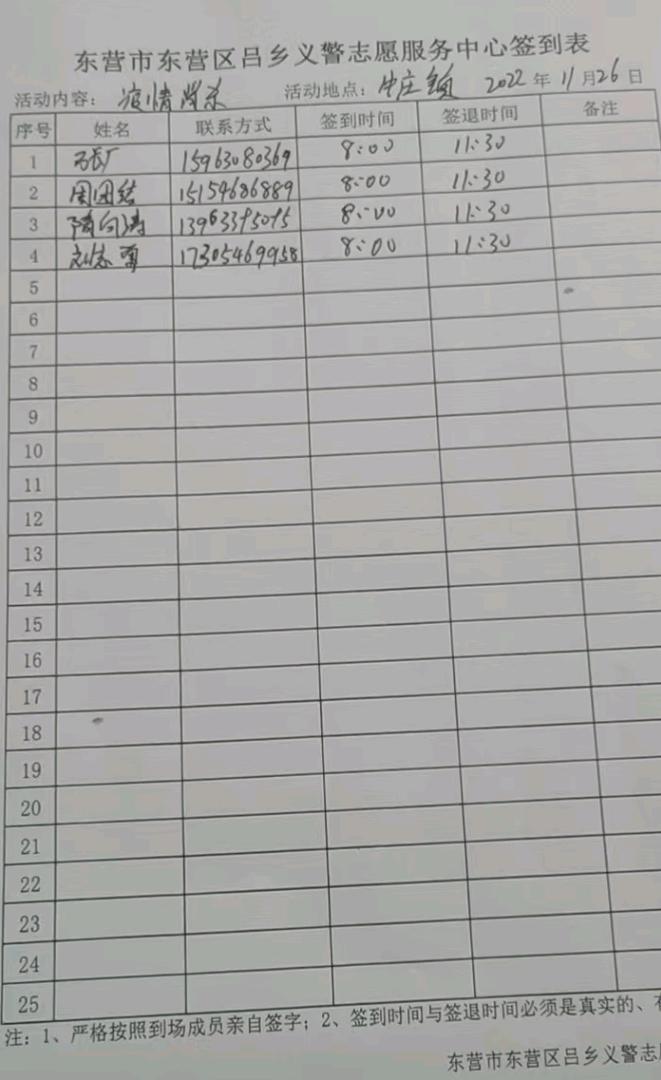 东营市东营区吕乡义警志愿服务中心签到表
活动内容： 疫情消杀 活动地点：牛庄镇 2022年11月26日
序号 姓名 联系方式 签到时间 签退时间 备注
1 15963080369 8:00 11:30
2 周团结 15154686889 8:00 11:30
3 隋向涛 8:00 11:30
4 刘志勇 17305469958 8:00 11:30
5
6
7
8
9
10
11
12
13
14
15
16
17
18
19
20
21
22
23
24
25
注：1、严格按照到场成员亲自签字；2、签到时间与签退时间必须是真实的、
东营市东营区吕乡义警志愿